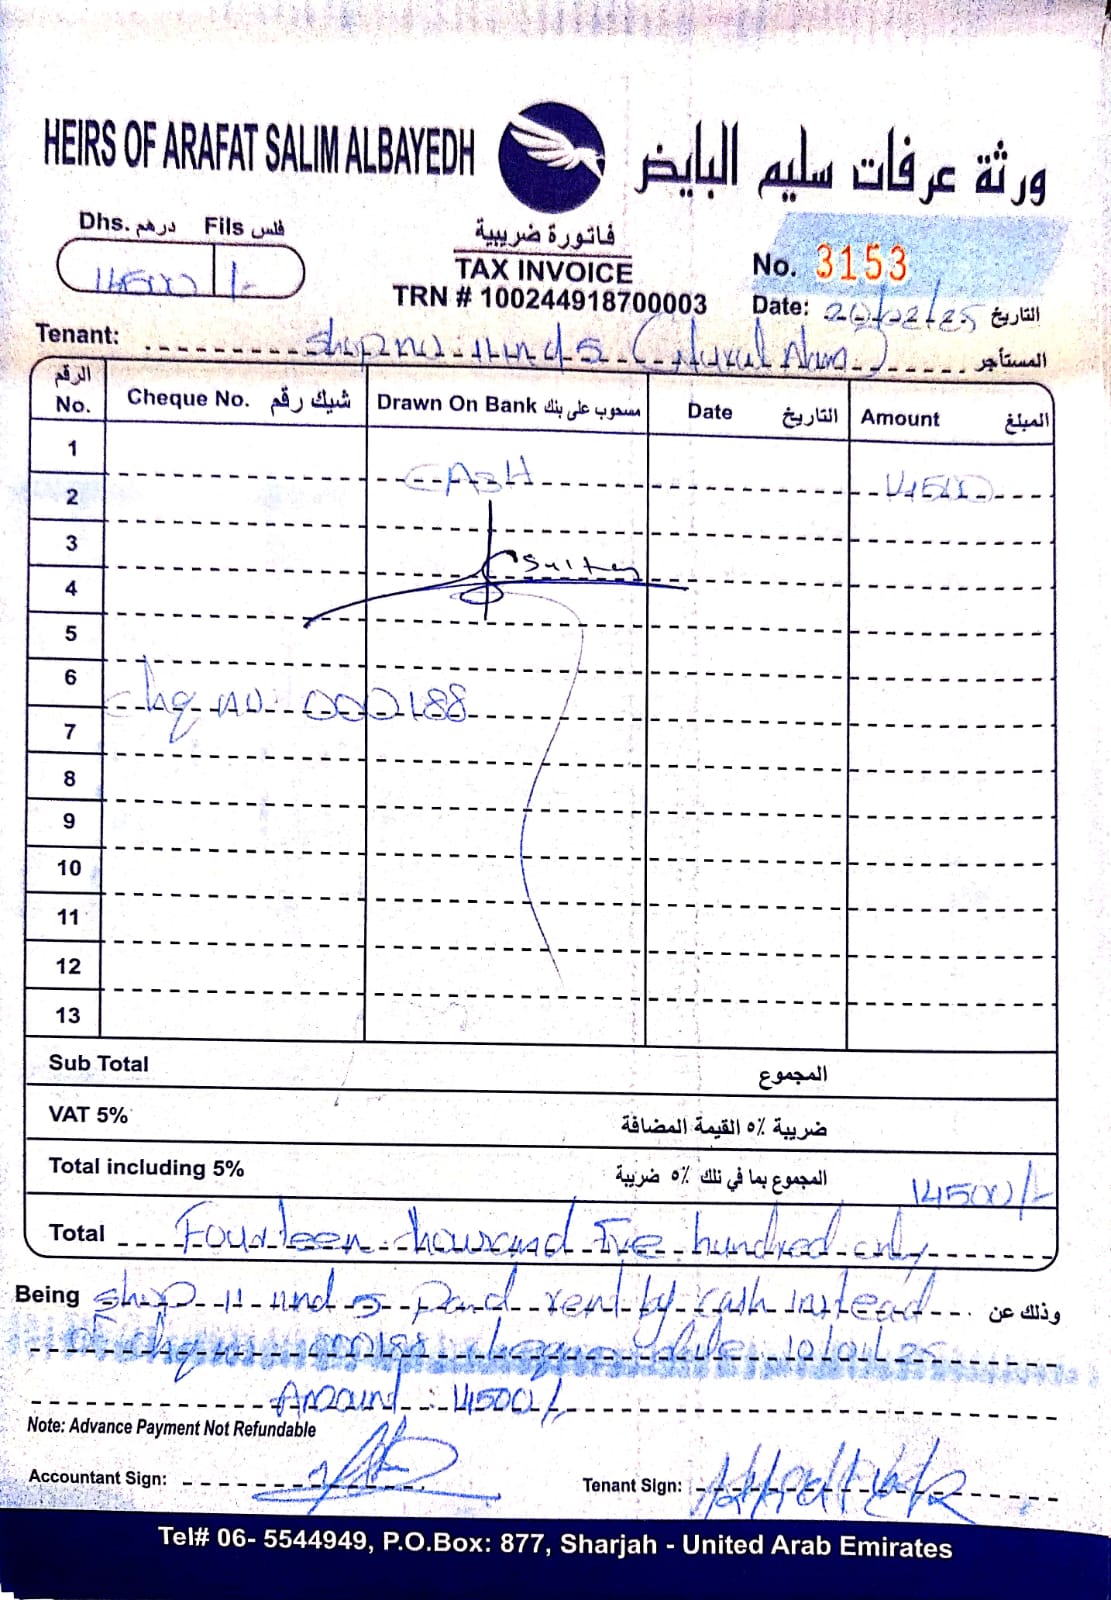 HEIRS OF ARAFAT SALIM ALBAYEDH
ورثة عرفات سليم البايض
Dhs. درهم Fils فلس
14500 /-
فاتورة ضريبية
TAX INVOICE
TRN # 100244918700003
No. 3153
Date: 20/02/25 التاريخ
Tenant: Shop no. 11 and 5 المستأجر
الرقم No. Cheque No. شيك رقم Drawn On Bank مسحوب على بنك Date التاريخ Amount المبلغ
1 CASH 14500
2
3
4
5
6 chq no: 000188
7
8
9
10
11
12
13
Sub Total المجموع
VAT 5% ضريبة ٥٪ القيمة المضافة
Total including 5% المجموع بما في تلك ٥٪ ضريبة 14500/-
Total Fourteen thousand Five hundred only
Being Shop 11 and 5 paid rent by cash instead وذلك عن
of chq 000188 cheque date 10/01/25
Amount: 14500/-
Note: Advance Payment Not Refundable
Accountant Sign:
Tenant Sign:
Tel# 06- 5544949, P.O.Box: 877, Sharjah - United Arab Emirates